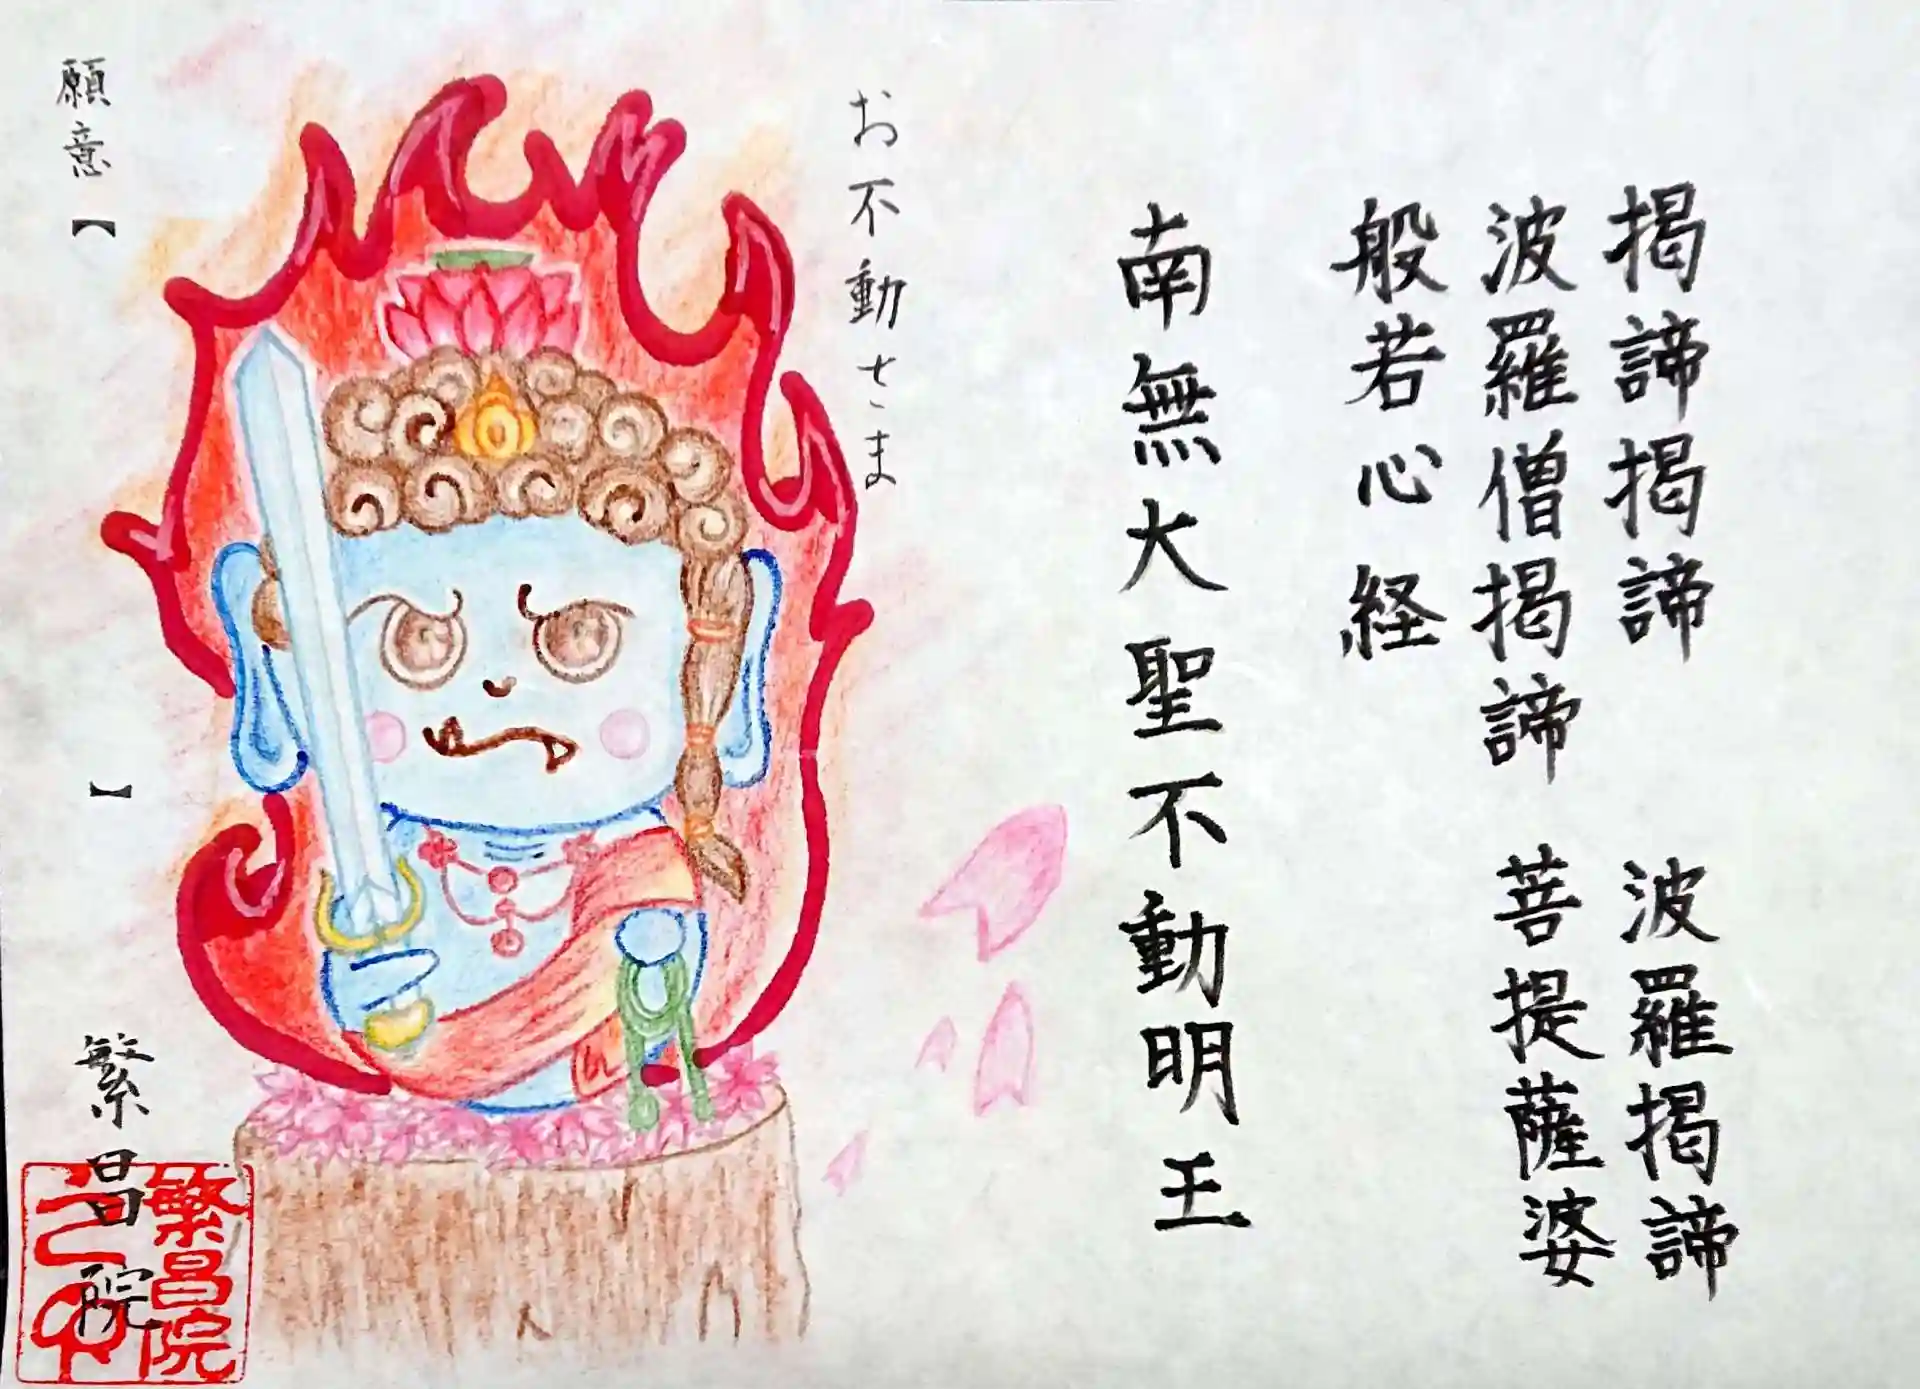 掲諦掲諦 波羅掲諦
波羅僧掲諦 菩提薩婆
般若心経
南無大聖不動明王
お不動さま
願意【 】
繁昌院
繁昌院之印